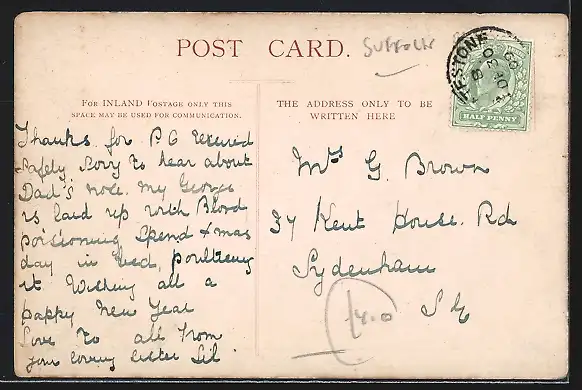 POST CARD.
Suffolk
HALF PENNY
FOR INLAND POSTAGE ONLY THIS
SPACE MAY BE USED FOR COMMUNICATION.
THE ADDRESS ONLY TO BE
WRITTEN HERE
Thanks for P C received
safely sorry to hear about
Dad's nose. My George
is laid up with Blood
poisioning Spend Xmas
day in bed, poulticing
it Wishing all a
happy New Year
Love to all from
your loving sister Lil
Mrs G. Brown
34 Kent House Rd
Sydenham
S E